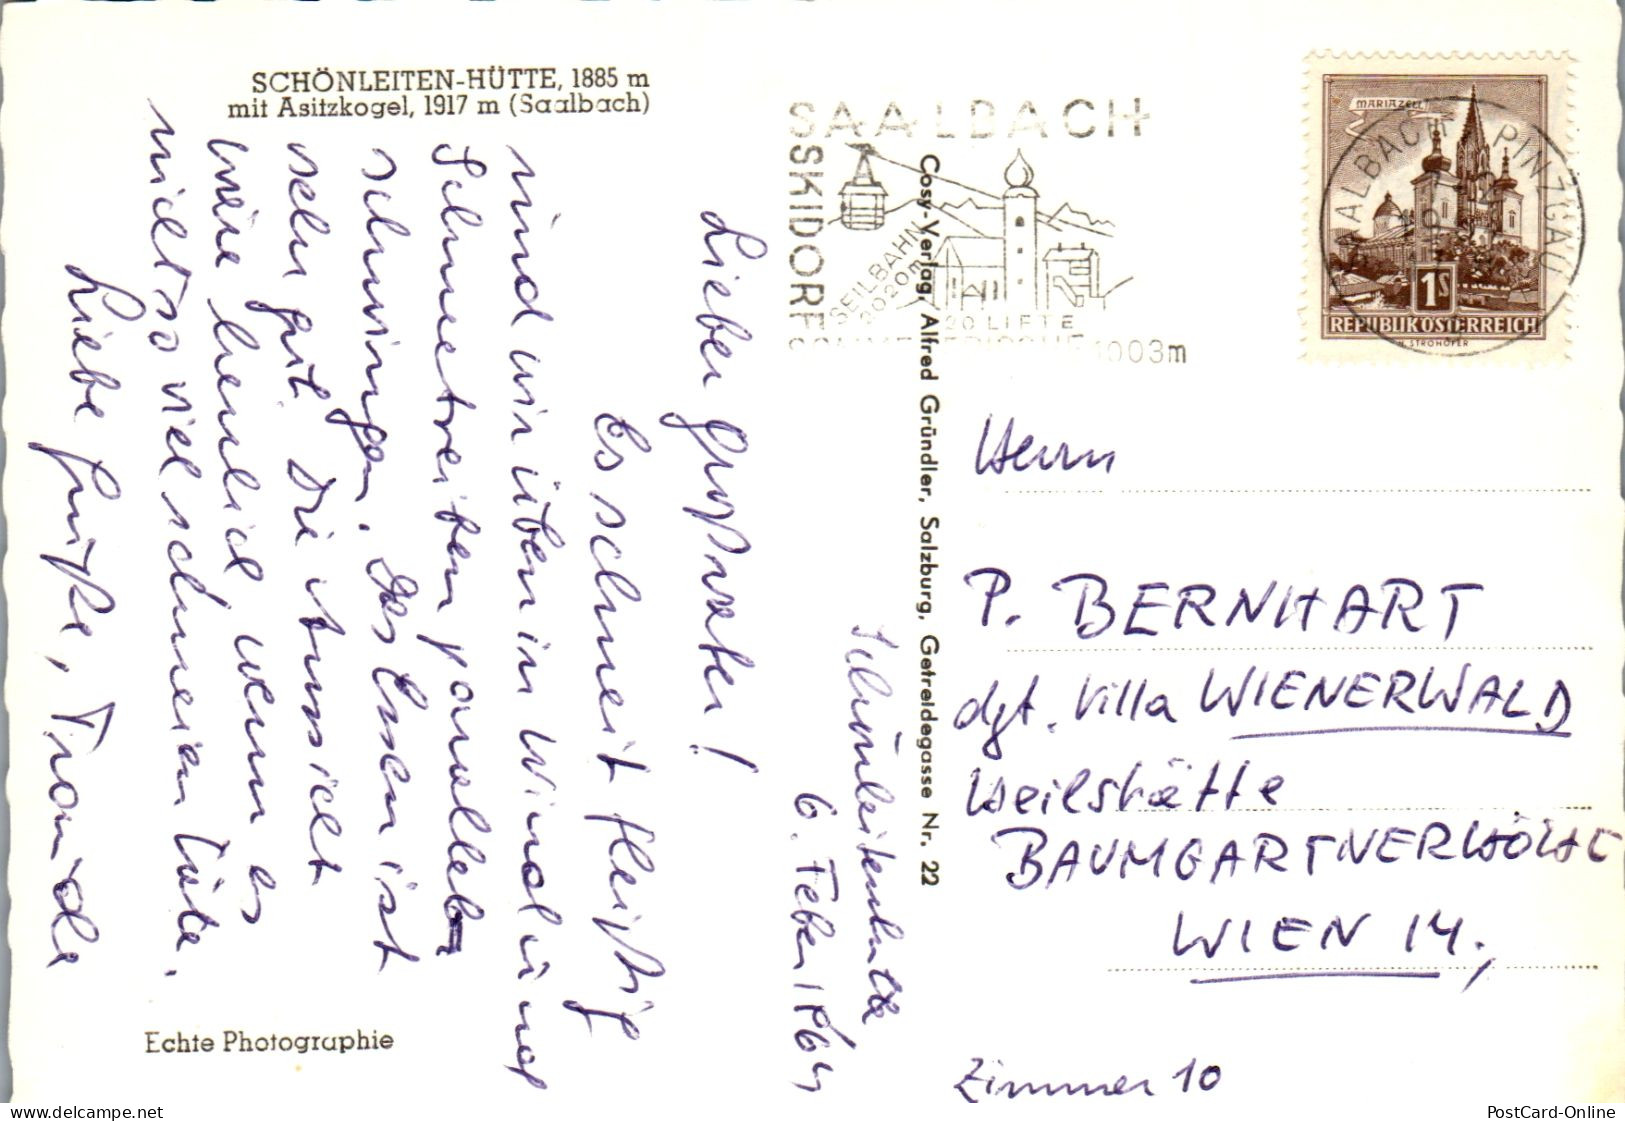 SCHÖNLEITEN-HÜTTE, 1885 m
mit Asitzkogel, 1917 m (Saalbach)
Schönleitenhütte
6. Feber 1964
Lieber Großvater!
Es schneit fleißig
und wir üben in Wind und
Schneetreiben parallel
schwingen. Das Essen ist
sehr gut. Die Aussicht
wäre herrlich wenn es
nicht so viel schneien täte.
Liebe Grüße, Traude
Echte Photographie
Cosy-Verlag, Alfred Gründler, Salzburg, Getreidegasse Nr. 22
SAALBACH
SSKIDORF
SEILBAHN
2020m
20 LIFTE
1003m
MARIAZELL
SAALBACH PINZGAU
1S
REPUBLIK ÖSTERREICH
H. STROHOFER
Herrn
P. BERNHART
dzt. Villa WIENERWALD
Heilstätte
BAUMGARTNERHÖHE
WIEN 14,
Zimmer 10
www.delcampe.net
PostCard-Online